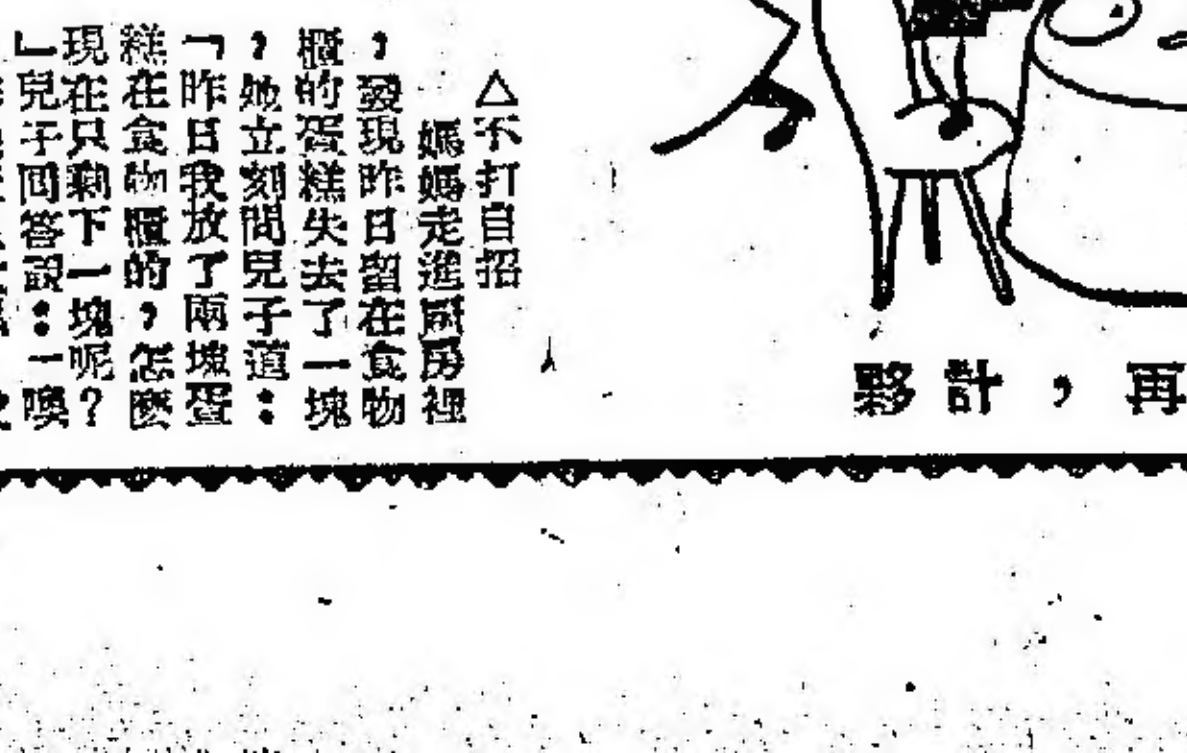 夥計，再
△不打自招
媽媽走進厨房裡
，發現昨日留在食物
櫃的蛋糕失去了一塊
，她立刻問兒子道：
「昨日我放了兩塊蛋
糕在食物櫃的，怎麼
現在只剩下一塊呢？
」兒子回答說：「噢